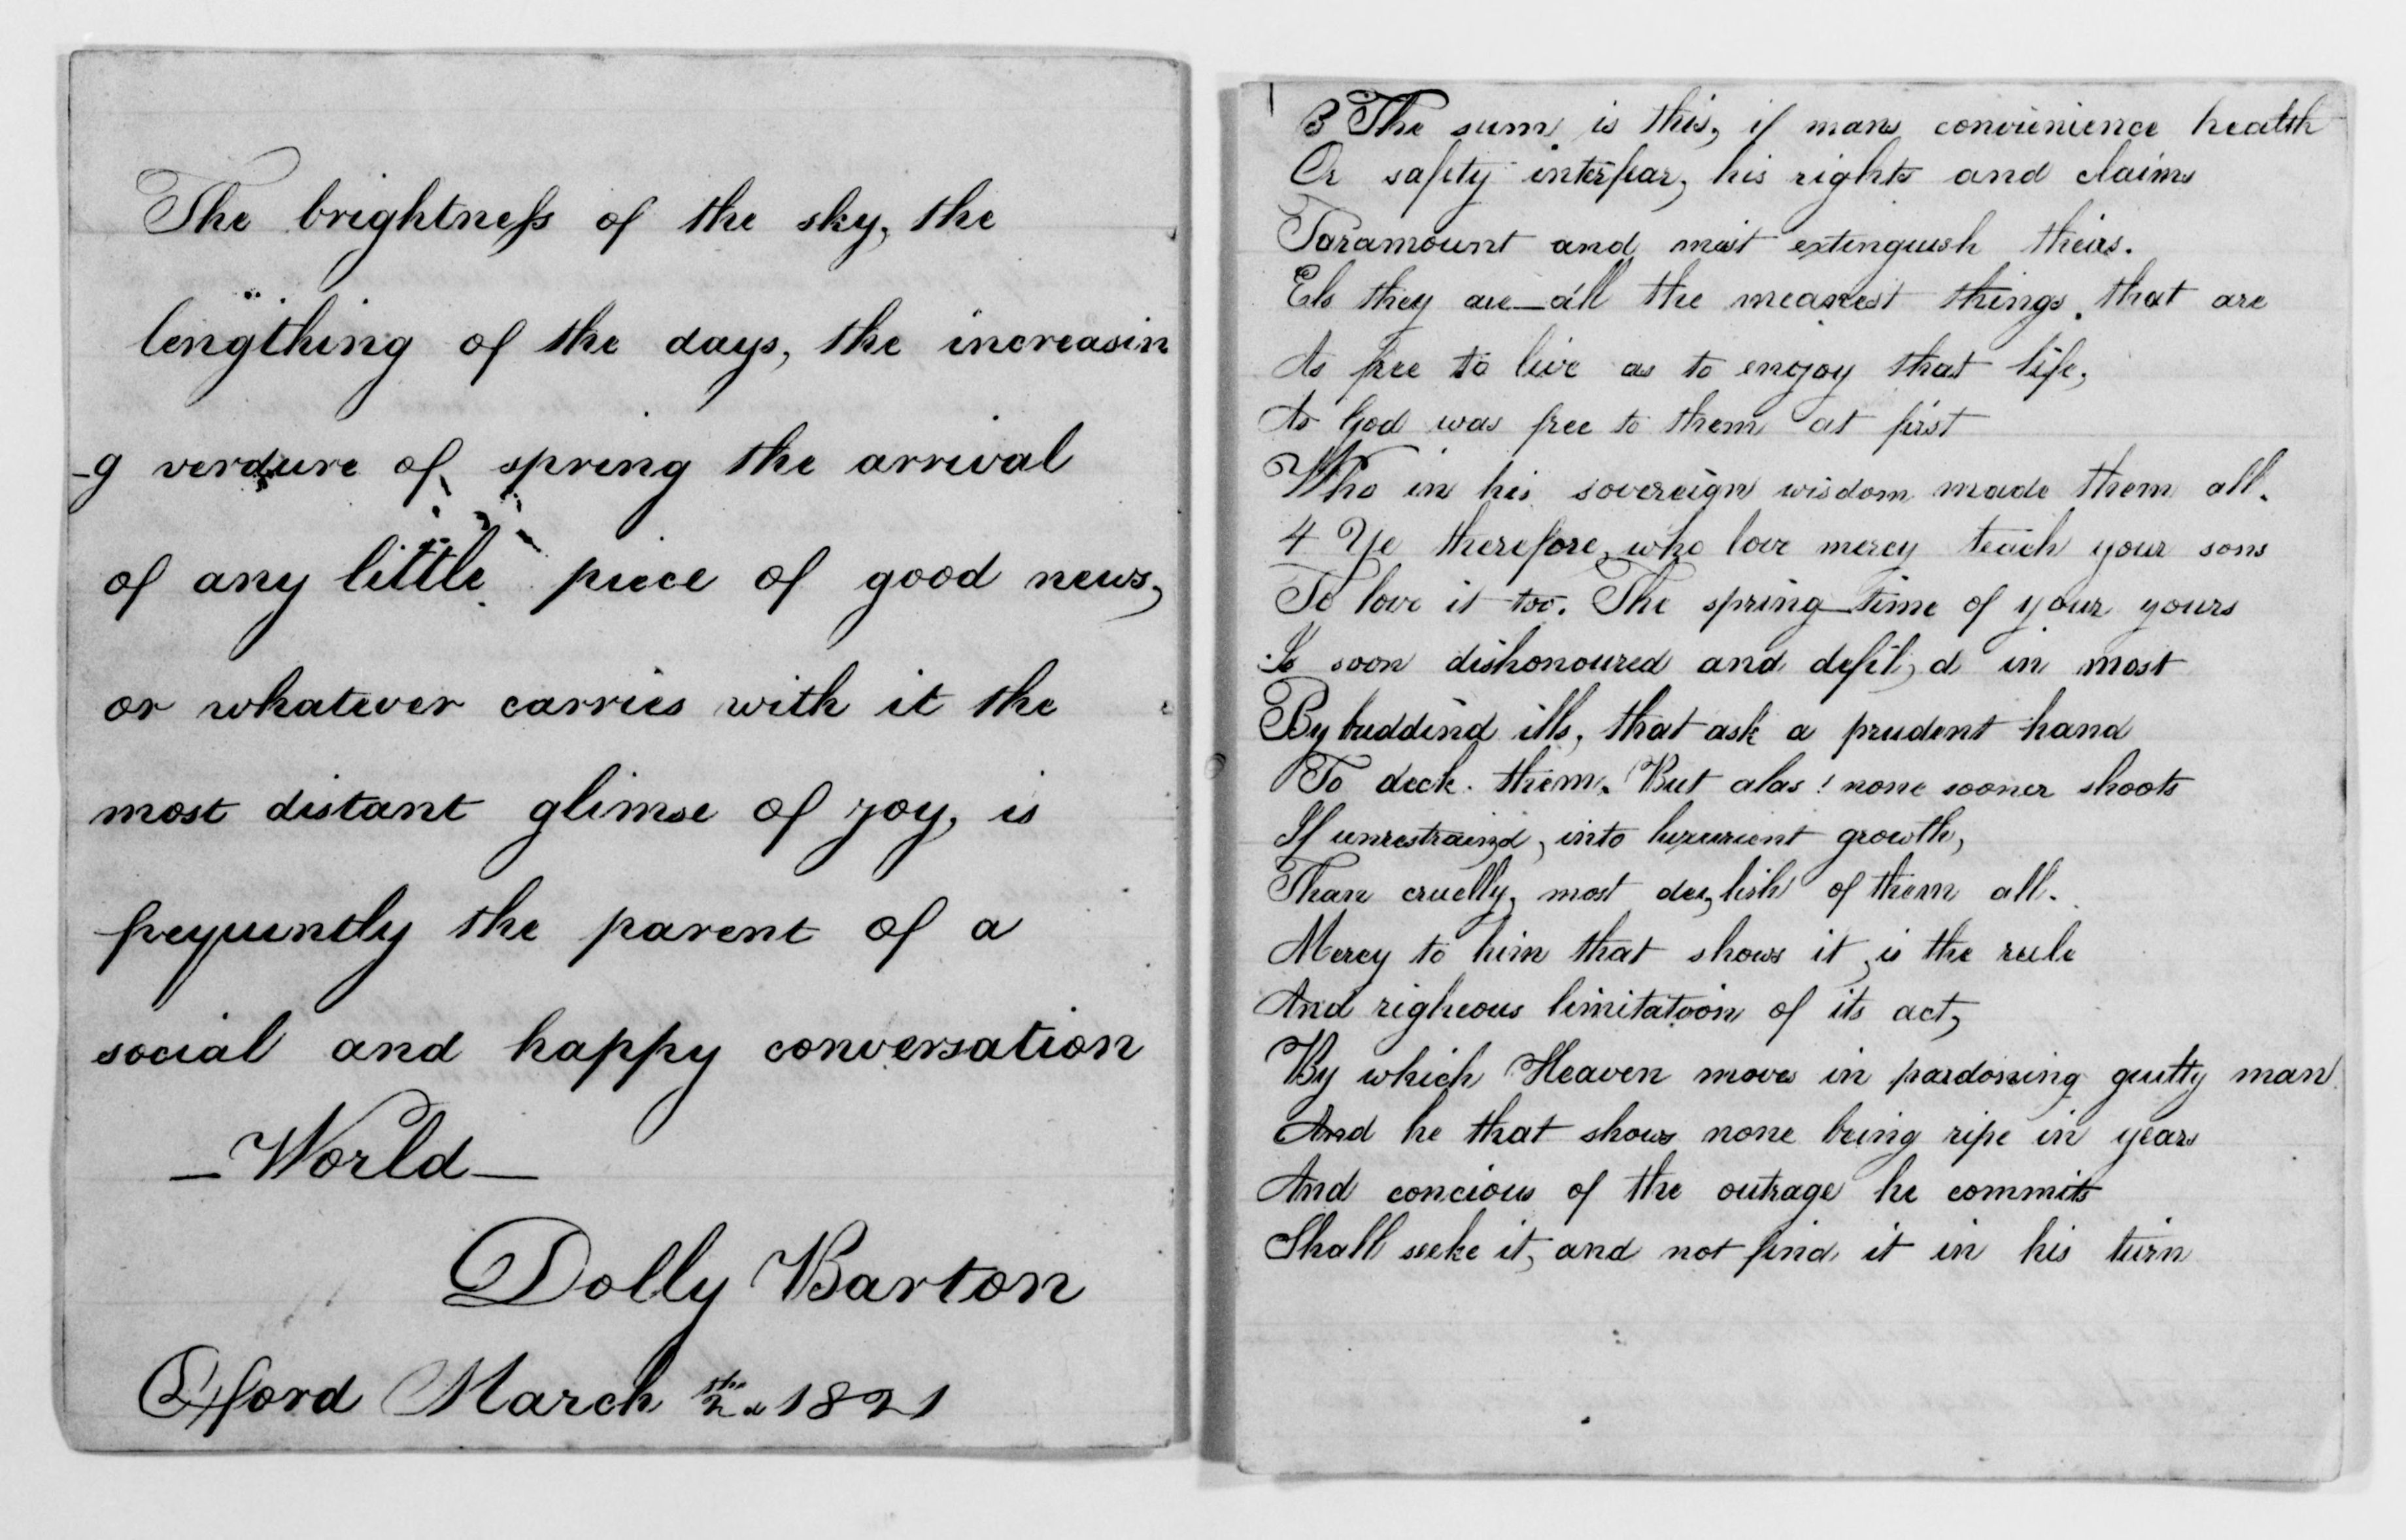 The brightneſs of the sky, the
lengthing of the days, the increasin
-g verdure of spring the arrival
of any little piece of good news,
or whatever carries with it the
most distant glimse of joy, is
frequently the parent of a
social and happy conversation
— World —
Dolly Barton
Oxford March the 2d 1821
3 The sum is this, if mans convienience health
Or safety interfear, his rights and claims
Paramount and must extinguish theirs.
Els they are—all the meanest things, that are
As free to live as to enjoy that life,
As God was free to them at first
Who in his sovereign wisdom made them all.
4 Ye therefore, who love mercy teach your sons
To love it too. The spring-time of your yours
Is soon dishonoured and defil,d in most
By buddind ills, that ask a prudent hand
To deck them. But alas! none sooner shoots
If unrestraind, into luxurient growth,
Than cruelly, most dev,lish of them all.
Mercy to him that shows it, is the rule
And righeous limitatoion of its act,
By which Heaven moves in pardoning guilty man
And he that shows none being ripe in years
And concious of the outrage he commits
Shall seeke it, and not find it in his turn